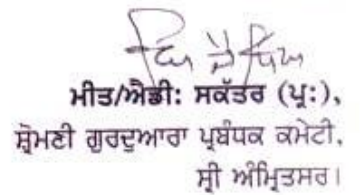 ਮੀਤ/ਐਡੀ: ਸਕੱਤਰ (ਪ੍ਰ:),
ਸ਼੍ਰੋਮਣੀ ਗੁਰਦੁਆਰਾ ਪ੍ਰਬੰਧਕ ਕਮੇਟੀ,
ਸ੍ਰੀ ਅੰਮ੍ਰਿਤਸਰ।